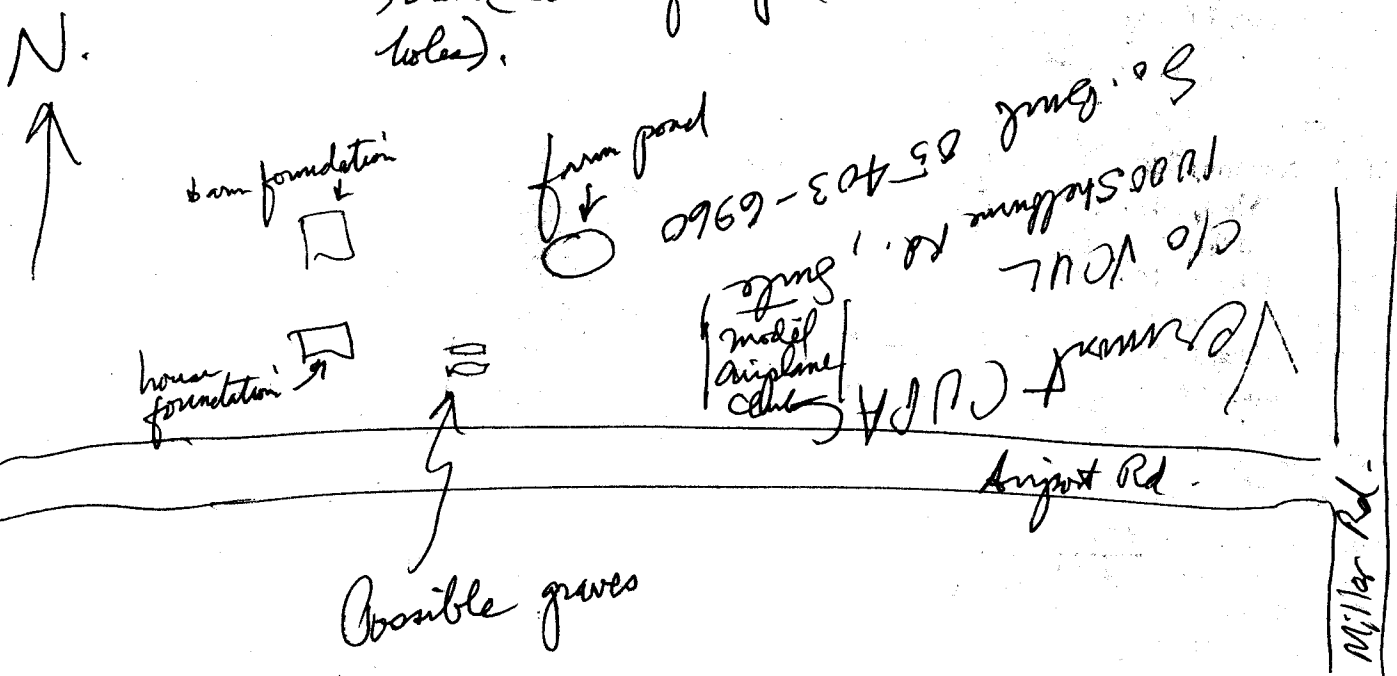 holes).
N.
barn foundation
farm pond
house
foundation
model
airplane
club
Airport Rd.
Miller Rd.
Possible graves
Vermont CUPA
c/o VCUL
1000 Shelburne Rd.,
So. Burl. 05403-6960